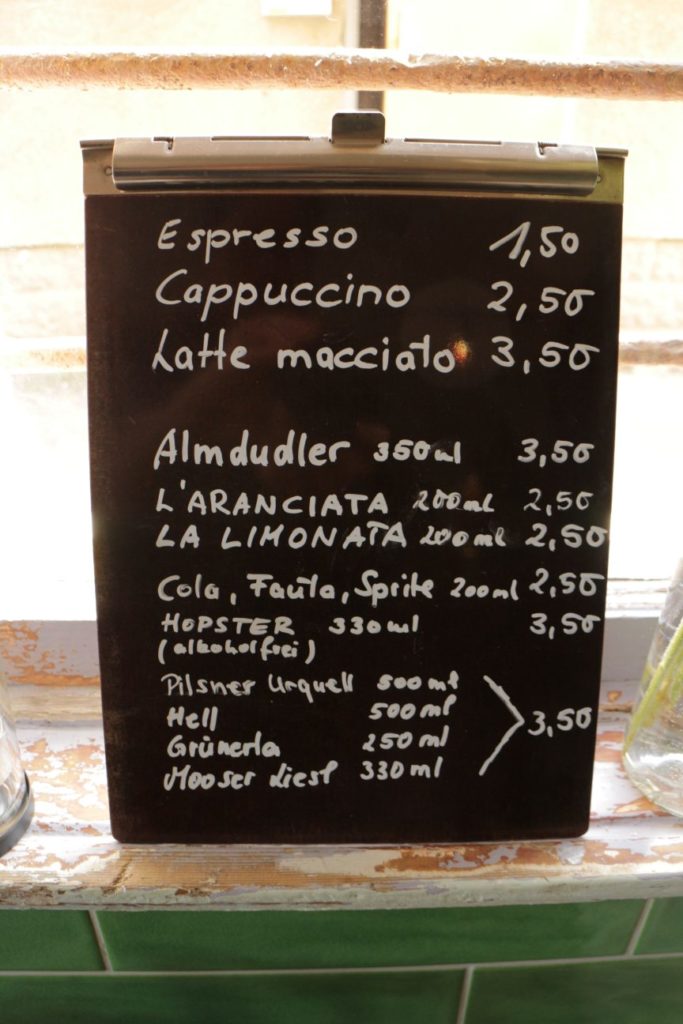 Espresso 1,50
Cappuccino 2,50
Latte macciato 3,50
Almdudler 350ml 3,50
L'ARANCIATA 200ml 2,50
LA LIMONATA 200ml 2,50
Cola, Fanta, Sprite 200ml 2,50
HOPSTER 330ml 3,50
(alkoholfrei)
Pilsner Urquell 500ml
Hell 500ml
3,50
Grünerla 250ml
Mooser Liesl 330ml